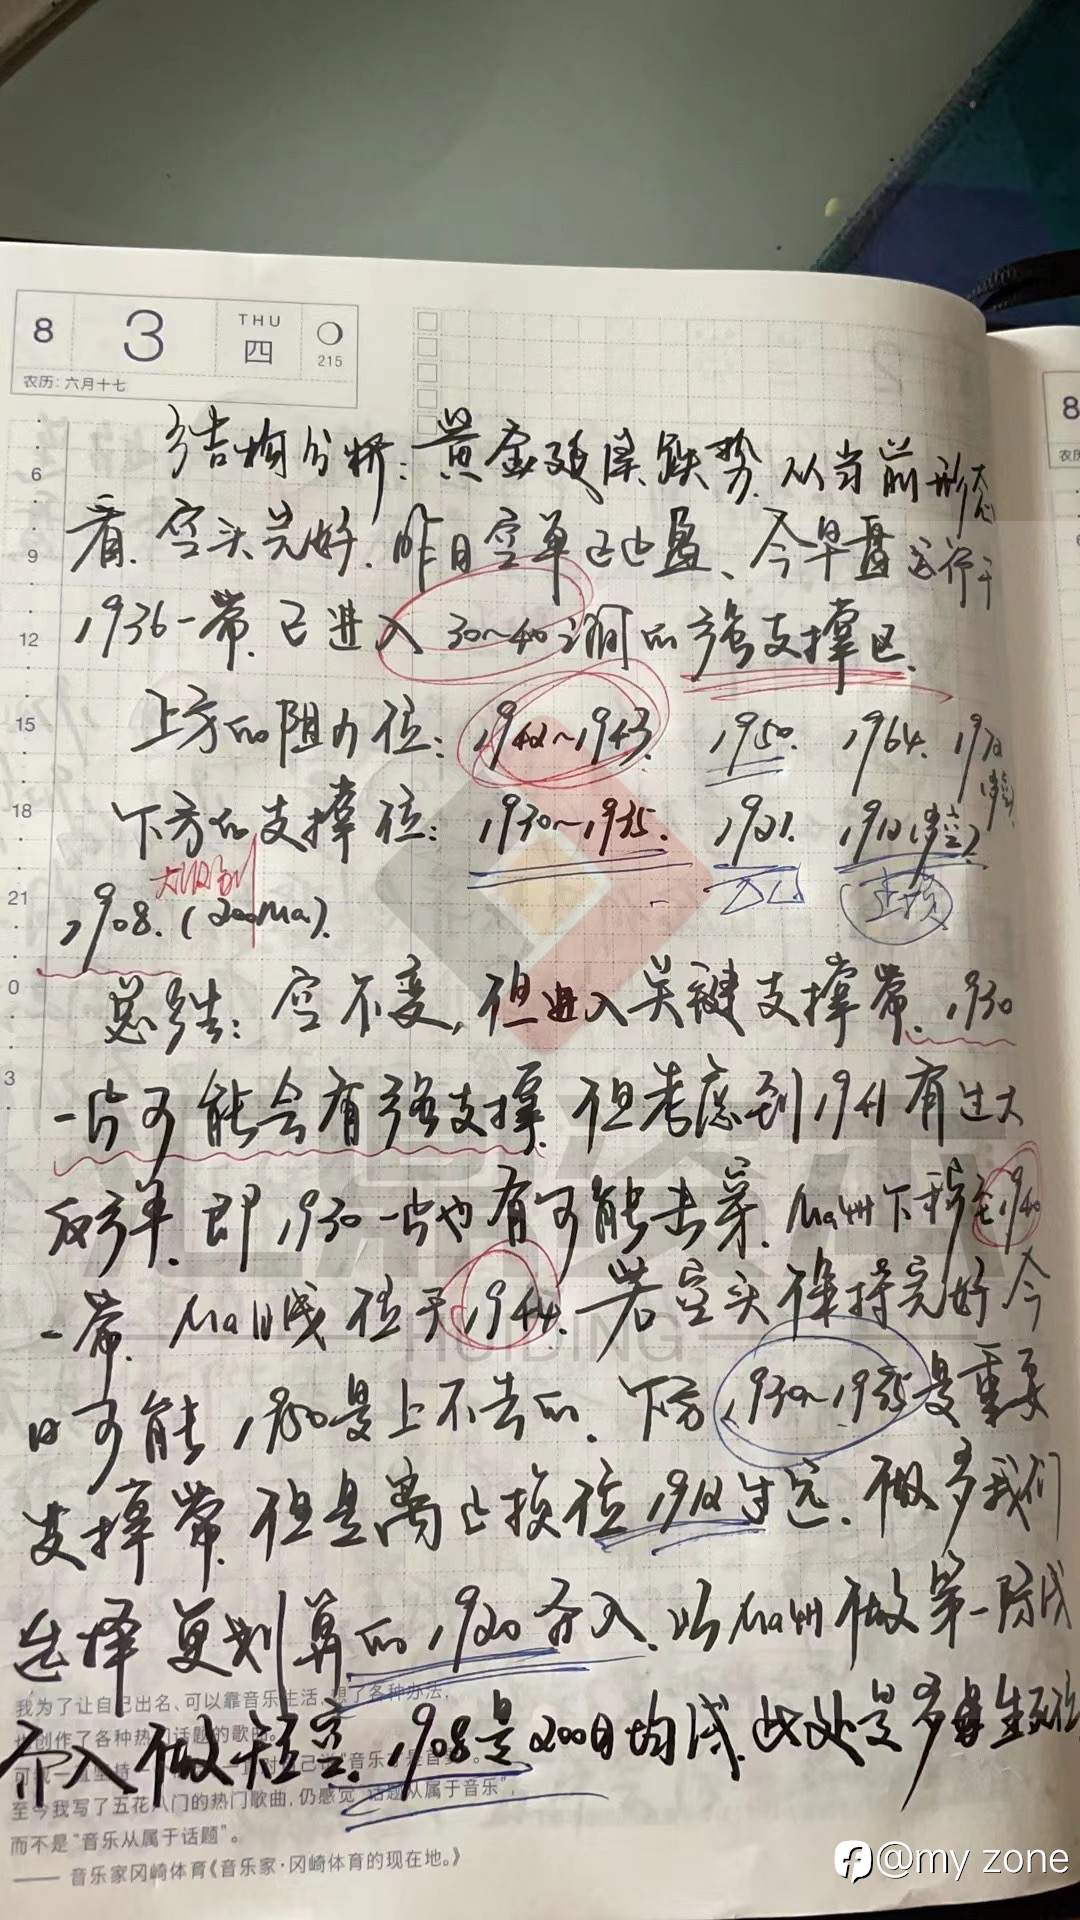 8 3 THU 四 215
农历：六月十七
结构分析：黄金延续跌势，从当前形态
看，空头完好，昨日空单已止盈、今早盘运行于
1936一带，已进入30~40之间的强支撑区，
上方的阻力位：1942~1943. 1950. 1964. 1972
下方的支撑位：1930~1935. 1921. 1912
1908.（200Ma）.
总结：空不变，但进入关键支撑带，1930
一片可能会有强支撑，但考虑到1941有过大
反弹，即1930一片也有可能击穿，Ma4H下移至1940
一带，Ma1H线位于1944，若空头保持完好今
日可能1950是上不去的，下方1930~1935是重要
支撑带，但是离止损位1912过远，做多我们
选择更划算的1920介入，以Ma4H做第一防线
介入做短空，1908是200日均线，此处是多
我为了让自己出名、可以靠音乐生活，想了各种办法，
创作了各种热门话题的歌曲。
至今我写了五花八门的热门歌曲，仍感觉“话题从属于音乐”，
而不是“音乐从属于话题”。
—— 音乐家冈崎体育《音乐家·冈崎体育的现在地。》
6
9
12
15
18
21
0
3
8
HUIDING
@my zone